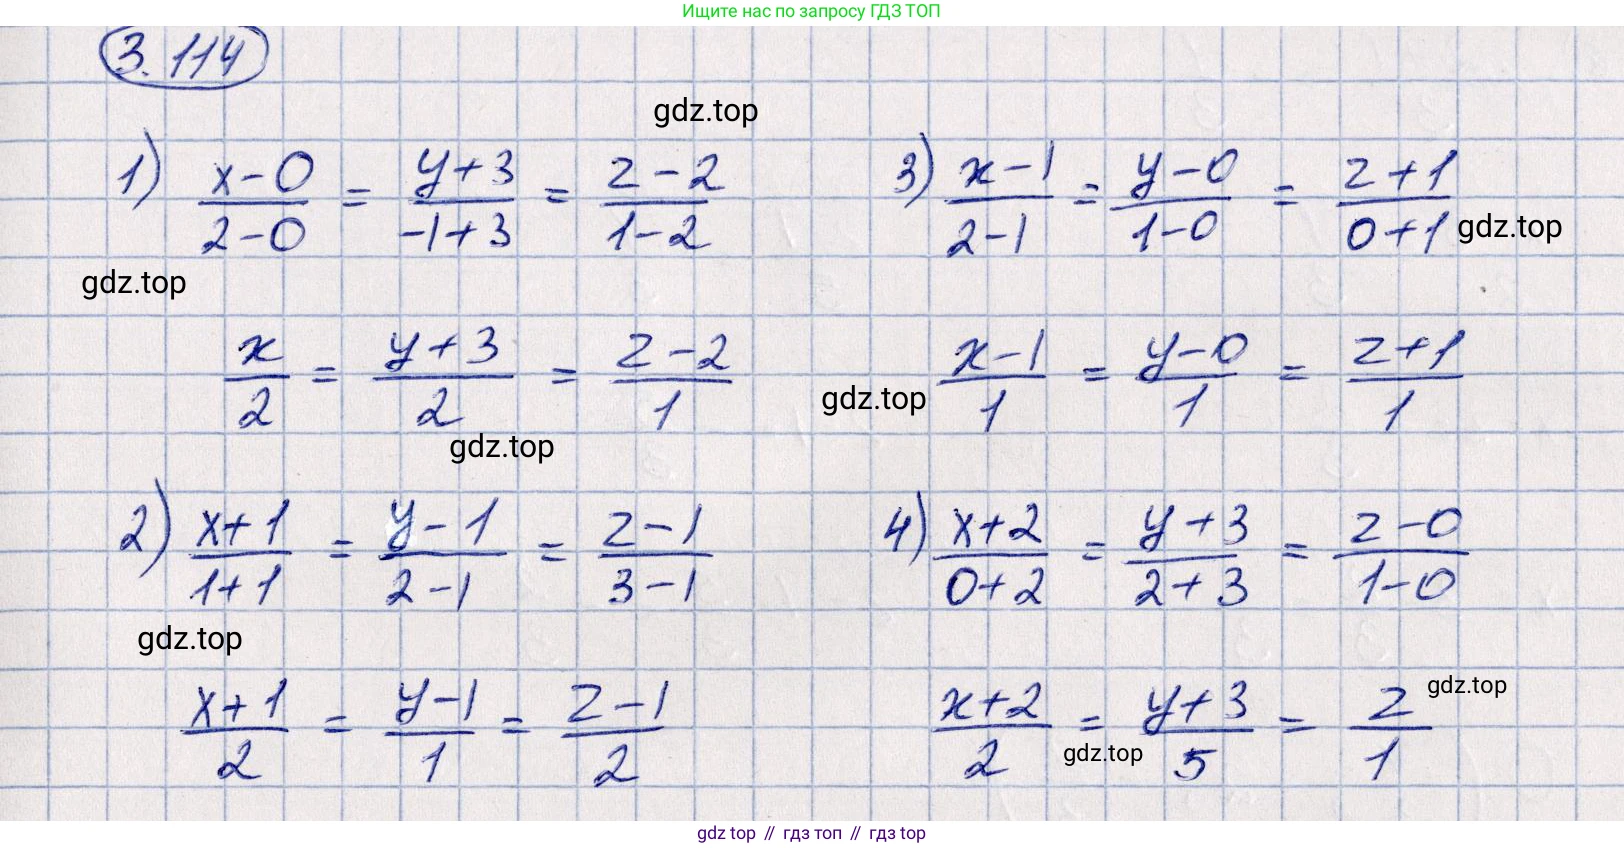 Ищите нас по запросу ГДЗ ТОП
3.114
gdz.top
1) (x-0)/(2-0) = (y+3)/(-1+3) = (z-2)/(1-2)
3) (x-1)/(2-1) = (y-0)/(1-0) = (z+1)/(0+1)
gdz.top
gdz.top
x/2 = (y+3)/2 = (z-2)/1
(x-1)/1 = (y-0)/1 = (z+1)/1
gdz.top
gdz.top
2) (x+1)/(1+1) = (y-1)/(2-1) = (z-1)/(3-1)
4) (x+2)/(0+2) = (y+3)/(2+3) = (z-0)/(1-0)
gdz.top
(x+1)/2 = (y-1)/1 = (z-1)/2
(x+2)/2 = (y+3)/5 = z/1
gdz.top
gdz.top
gdz top // гдз топ // гдз top